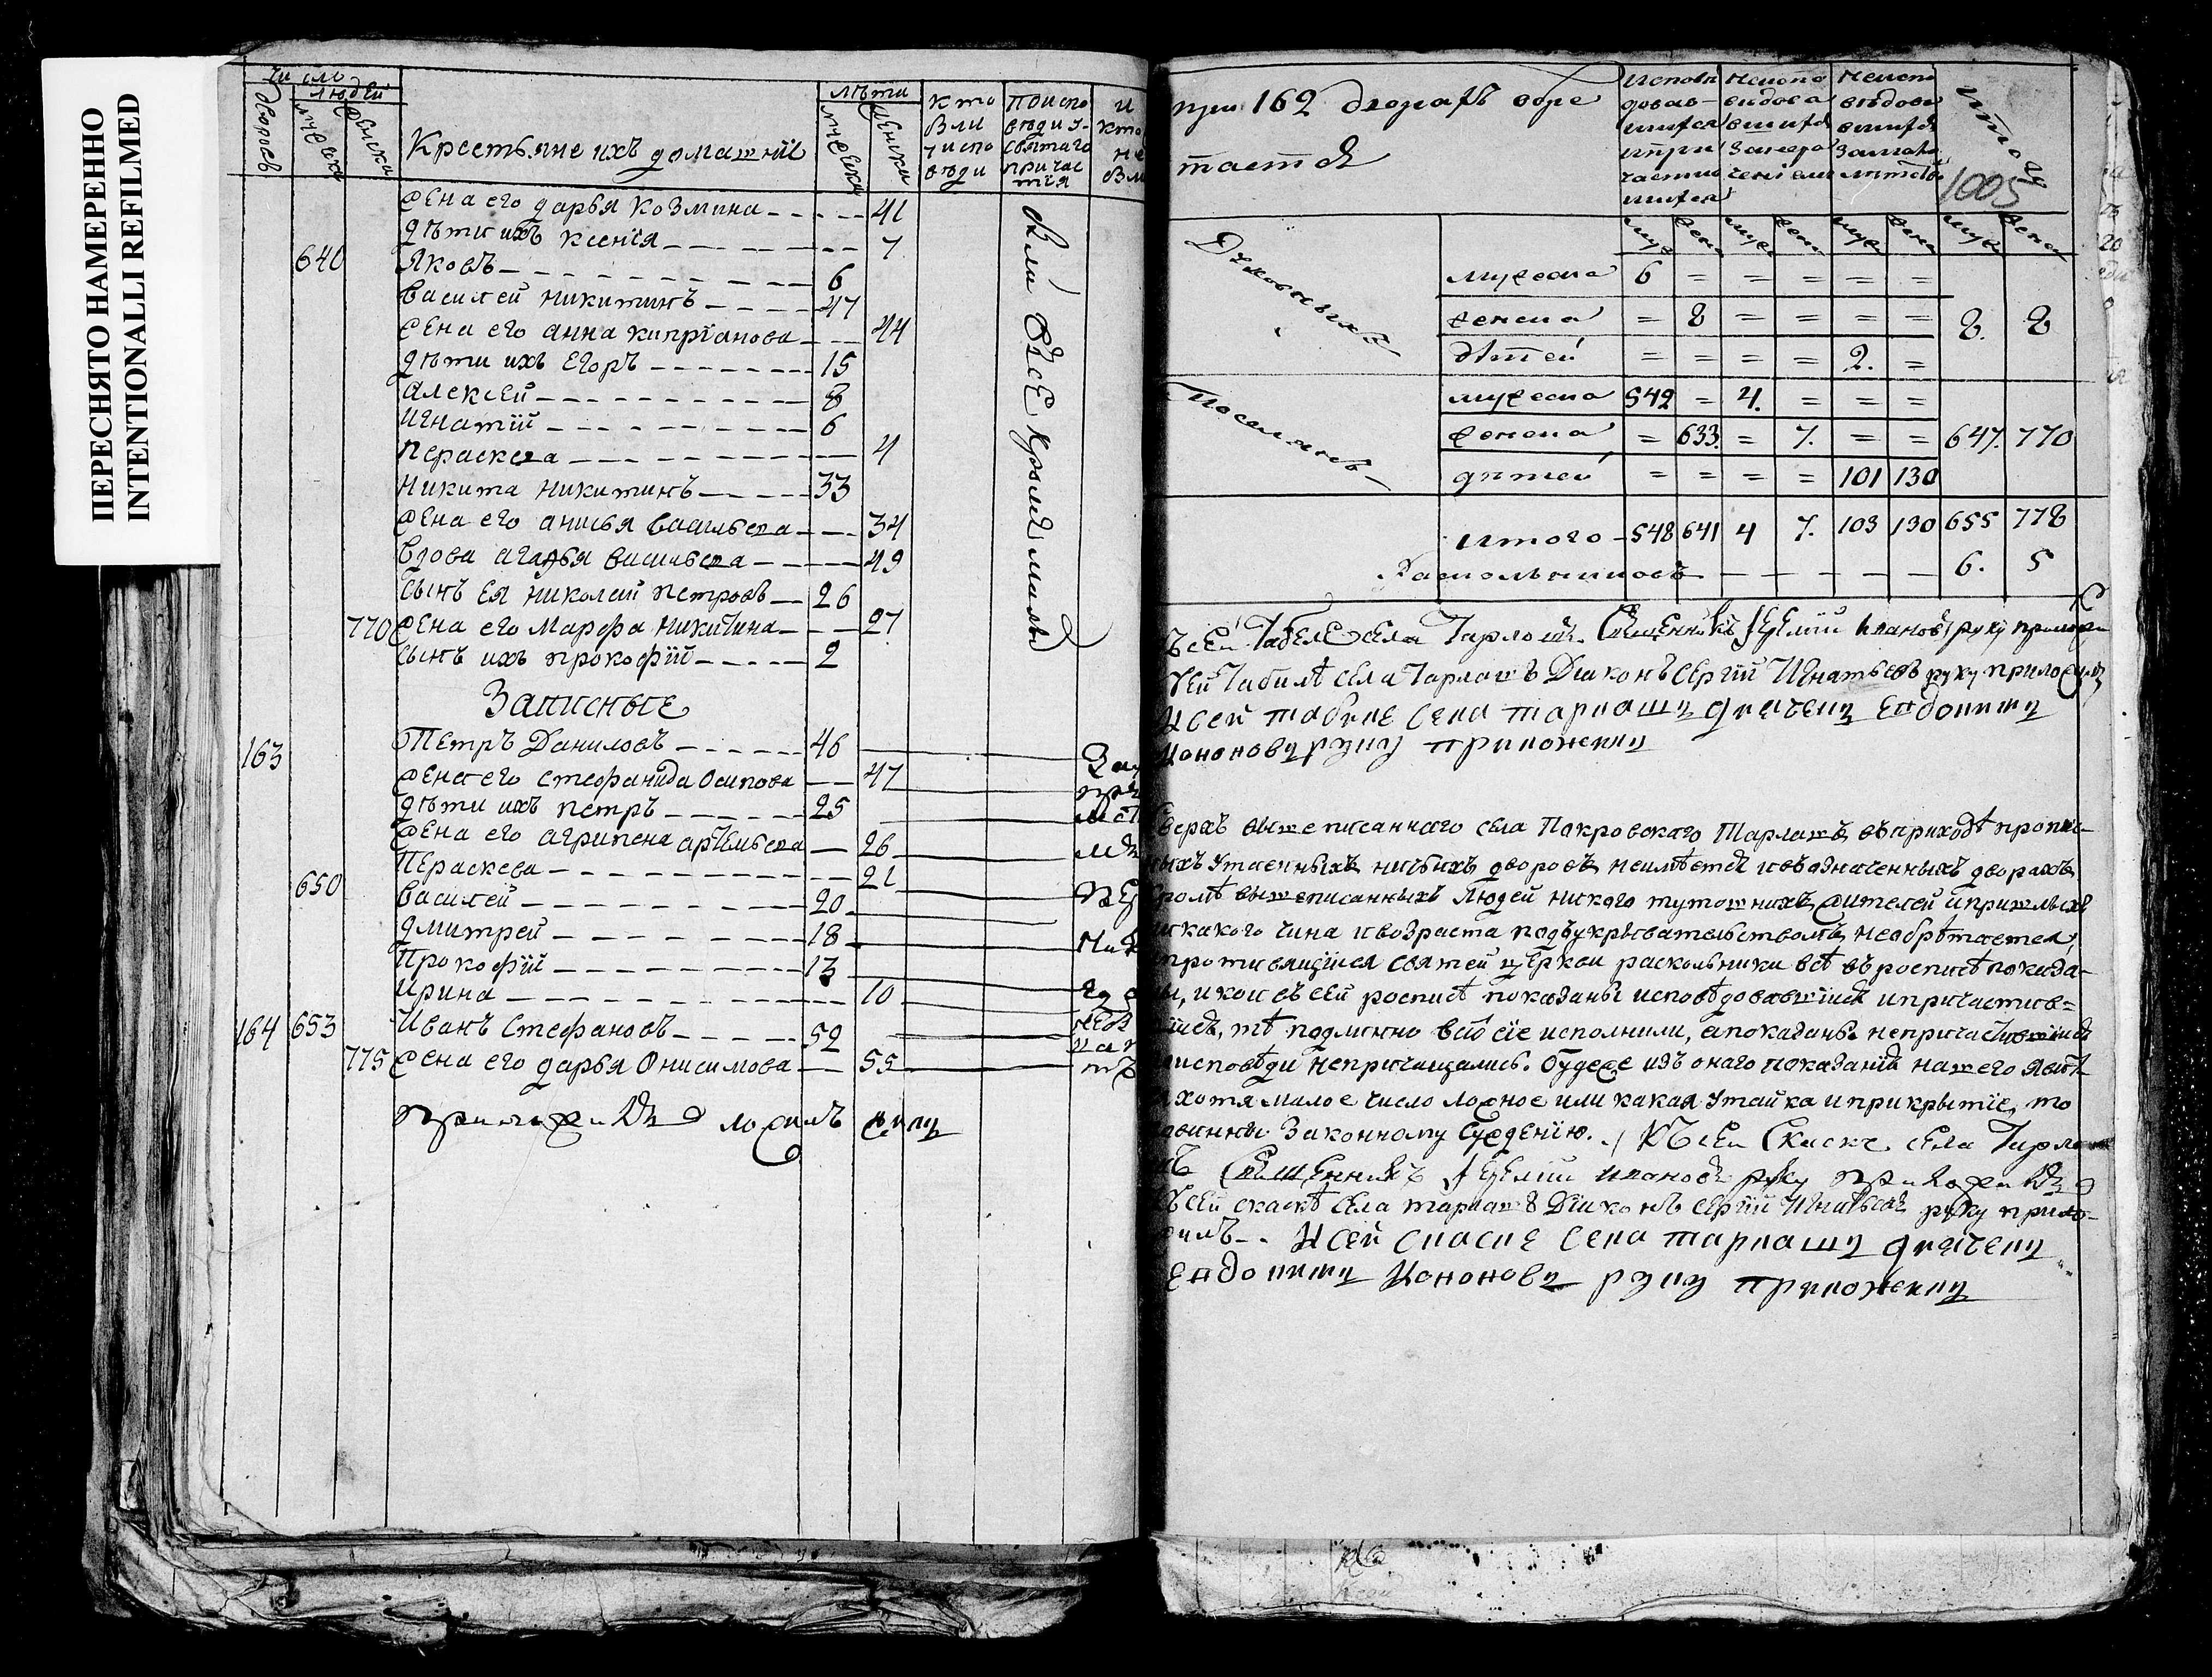 ПЕРЕСНЯТО НАМЕРЕННО
INTENTIONALLI REFILMED
число
людей
дворовъ
мужеска
женска
Крестьяне ихъ домашнїе
лѣта
мужеска
женска
кто
были
у испо
вѣди
По испо
вѣди у
святаго
причас
тїя
и
кто
не
бы
жена его дарья козмина 41
дѣти ихъ ксенїя 7
640 Яковъ 6
василей никитинъ 47
жена его анна кипрїанова 44
дѣти ихъ Егоръ 15
алексей 8
игнатїй 6
пераскева 4
никита никитинъ 33
жена его анисья васильева 34
вдова агафья васильева 49
сынъ ея николай петровъ 26
770 жена его марфа никитина 27
сынъ ихъ прокофїй 2
были всѣ кромѣ малыхъ
Записные
163 Петръ Даниловъ 46
жена его стефанида осипова 47
дѣти ихъ петръ 25
жена его агрипена артемьева 26
Пераскева 21
650 василей 20
дмитрей 18
Прокофїй 13
ирина 10
164 653 Иванъ Стефановъ 52
775 жена его дарья Онисимова 55
приложилъ
при 162 дворахъ обре
тается
исповѣ
довав
шихся
и при
частив
шихся
неиспо
вѣдова
вшихся
неиспо
вѣдова
вшихся
за мало
лѣтствомъ
итого
1005
муж жен муж жен муж жен муж жен
Духовныхъ
мужеска 6 = = = = =
женска = 8 = = = = 8. 8
дѣтей = = = = 2. =
Поселянъ
мужеска 542 = 4. = = =
женска = 633. = 7. = = 647. 770
дѣтей = = = = 101 130
Итого 548 641 4 7. 103 130 655 778
Раскольниковъ 6. 5
сей табеле села Тарлаш. Священникъ Иванов руку прилож
сей табелѣ села Тарлашъ Дїаконъ Сергїй Игнатьевъ руку приложилъ
К сей табеле села тарлашъ дьячекъ Евдокимъ
Кононовъ руку приложилъ
Сверхъ вышеписанного села Покровскаго Тарлашъ въ приходѣ пропис-
ныхъ утаенныхъ ничьихъ дворовъ неимѣется и въ означенныхъ дворахъ
кромѣ вышеписанныхъ людей никого тутошнихъ жителей и пришлыхъ
никакого чина и возраста подъ укрывательствомъ необрѣтается,
противящїися святей церкви раскольники всѣ въ росписѣ показа-
ны, и кои въ сей росписѣ показаны исповѣдовавшїися и причастив-
шїися, тѣ подлинно всіо сїе исполнили, а показаны непричастившїися
исповѣди непричащались. Будеже изъ онаго показанїя нашего явитъ
хотя малое число ложное или какая утайка и прикрытїе, то
повинны законному сужденїю. Къ сей Скаске села Тарла
шъ Священникъ Иванов руку приложилъ
Къ сей скаскѣ села тарлашъ Дїаконъ Сергїй Игнатьевъ руку прило-
жилъ. К сей скаске села тарлашъ дьячекъ
Евдокимъ Кононовъ руку приложилъ